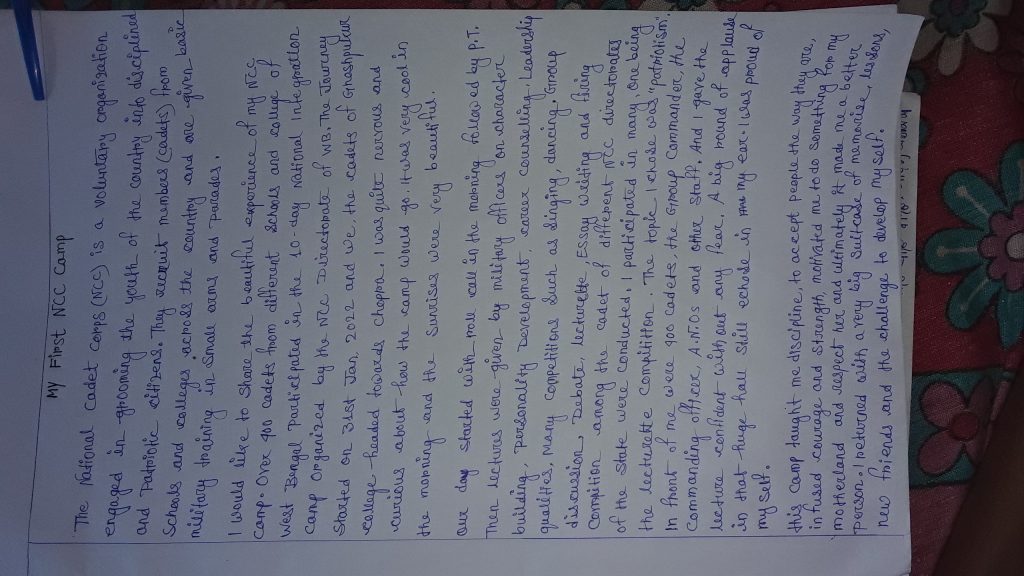 My First NCC Camp
The National Cadet corps (NCC) is a voluntary organization
engaged in grooming the youth of the country into disciplined
and Patriotic citizens. They recruit members (cadets) from
Schools and colleges across the country and are given "basic"
military training in small arms and parades.
I would like to Share the beautiful experience of my NCC
Camp. Over 900 cadets from different Schools and college of
West Bengal participated in the 10-day National Integration
Camp Organized by the NCC Directorate of WB. The Journey
Started on 31st Jan, 2022 and we, the cadets of
college headed towards I was quite nervous and
curious about how the camp would go. It was very cool in
the morning and the sunrises were very beautiful.
our day started with roll call in the morning followed by P.T.
Then lectures were given by military officers on character
building, personality Development, career counselling, Leadership
qualities. Many competitions Such as singing, dancing, Group
discussion, Debate, lecturette, Essay writing and firing
Competition among the cadet of different NCC directorates
of the State were conducted. I participated in many one being
the lecturette Compitition. The topic I chose was "patriotism".
In front of me were 900 cadets, the Group Commander, the
Commanding officer, A.N.Os and other Staff. And I gave the
lecture confident without any fear. A big round of applause
in that huge hall Still echose in my ear. I was proud of
my self.
this Camp taught me discipline, to accept people the way they are,
infused courage and strength, motivated me to do something for my
motherland and respect her and ultimately it made me a better
person. I returned with a very big suitcase of memories, lessons,
new friends and the challenge to develop my self.